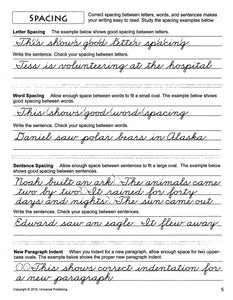 SPACING
Correct spacing between letters, words, and sentences makes
your writing easy to read. Study the spacing examples below.
Letter Spacing The example below shows good spacing between letters.
This shows good letter spacing.
Write the sentence. Check your spacing between letters.
Tess is volunteering at the hospital.
Word Spacing Allow enough space between words to fit a small oval. The example below shows
good spacing between words.
This shows good word spacing.
Write the sentence. Check your spacing between words.
Daniel saw polar bears in Alaska.
Sentence Spacing Allow enough space between sentences to fit a large oval. The example below
shows good spacing between sentences.
Noah built an ark. The animals came
two by two. It rained for forty
days and nights. The sun came out.
Write the sentences. Check your spacing between sentences.
Edward saw an eagle. It flew away.
New Paragraph Indent When you indent for a new paragraph, allow enough space for two upper-
case ovals. The example below shows the proper new paragraph indent.
This shows correct indentation for
a new paragraph.
Copyright © 2016, Universal Publishing
5